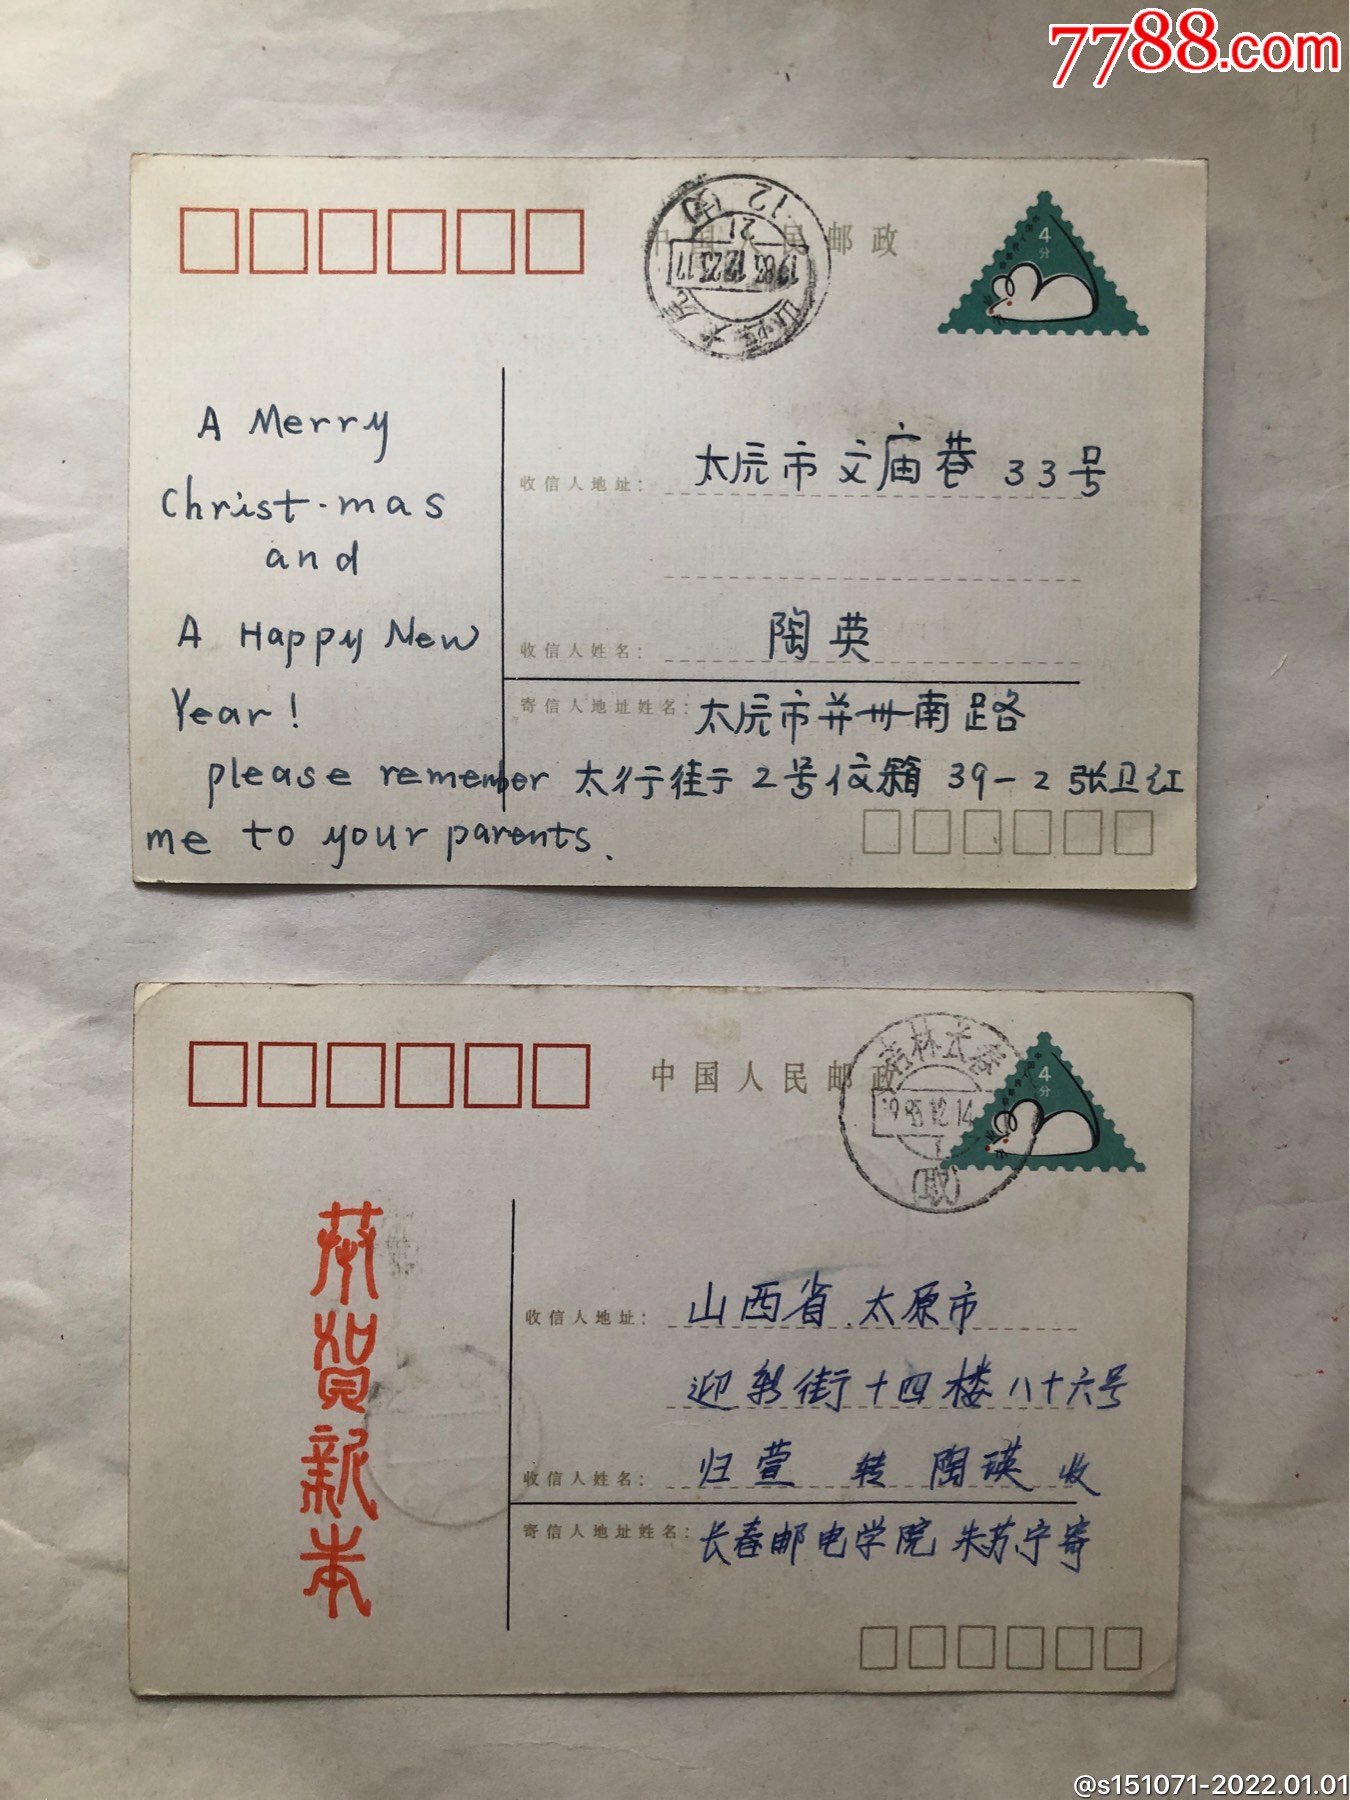 7788.com
中国人民邮政
4
分
山西太原
1983.12.23.17
21
A Merry
Christ-mas
and
A Happy New
Year!
please remember
me to your parents.
收信人地址：太原市文庙巷33号
收信人姓名：陶英
寄信人地址姓名：太原市并州南路
太行街2号信箱39-2张卫红
中国人民邮政
吉林长春
4
分
恭贺新年
收信人地址：山西省.太原市
迎新街十四楼八十六号
收信人姓名：归萱 转 陶瑛 收
寄信人地址姓名：长春邮电学院 朱苏宁寄
@s151071-2022.01.01